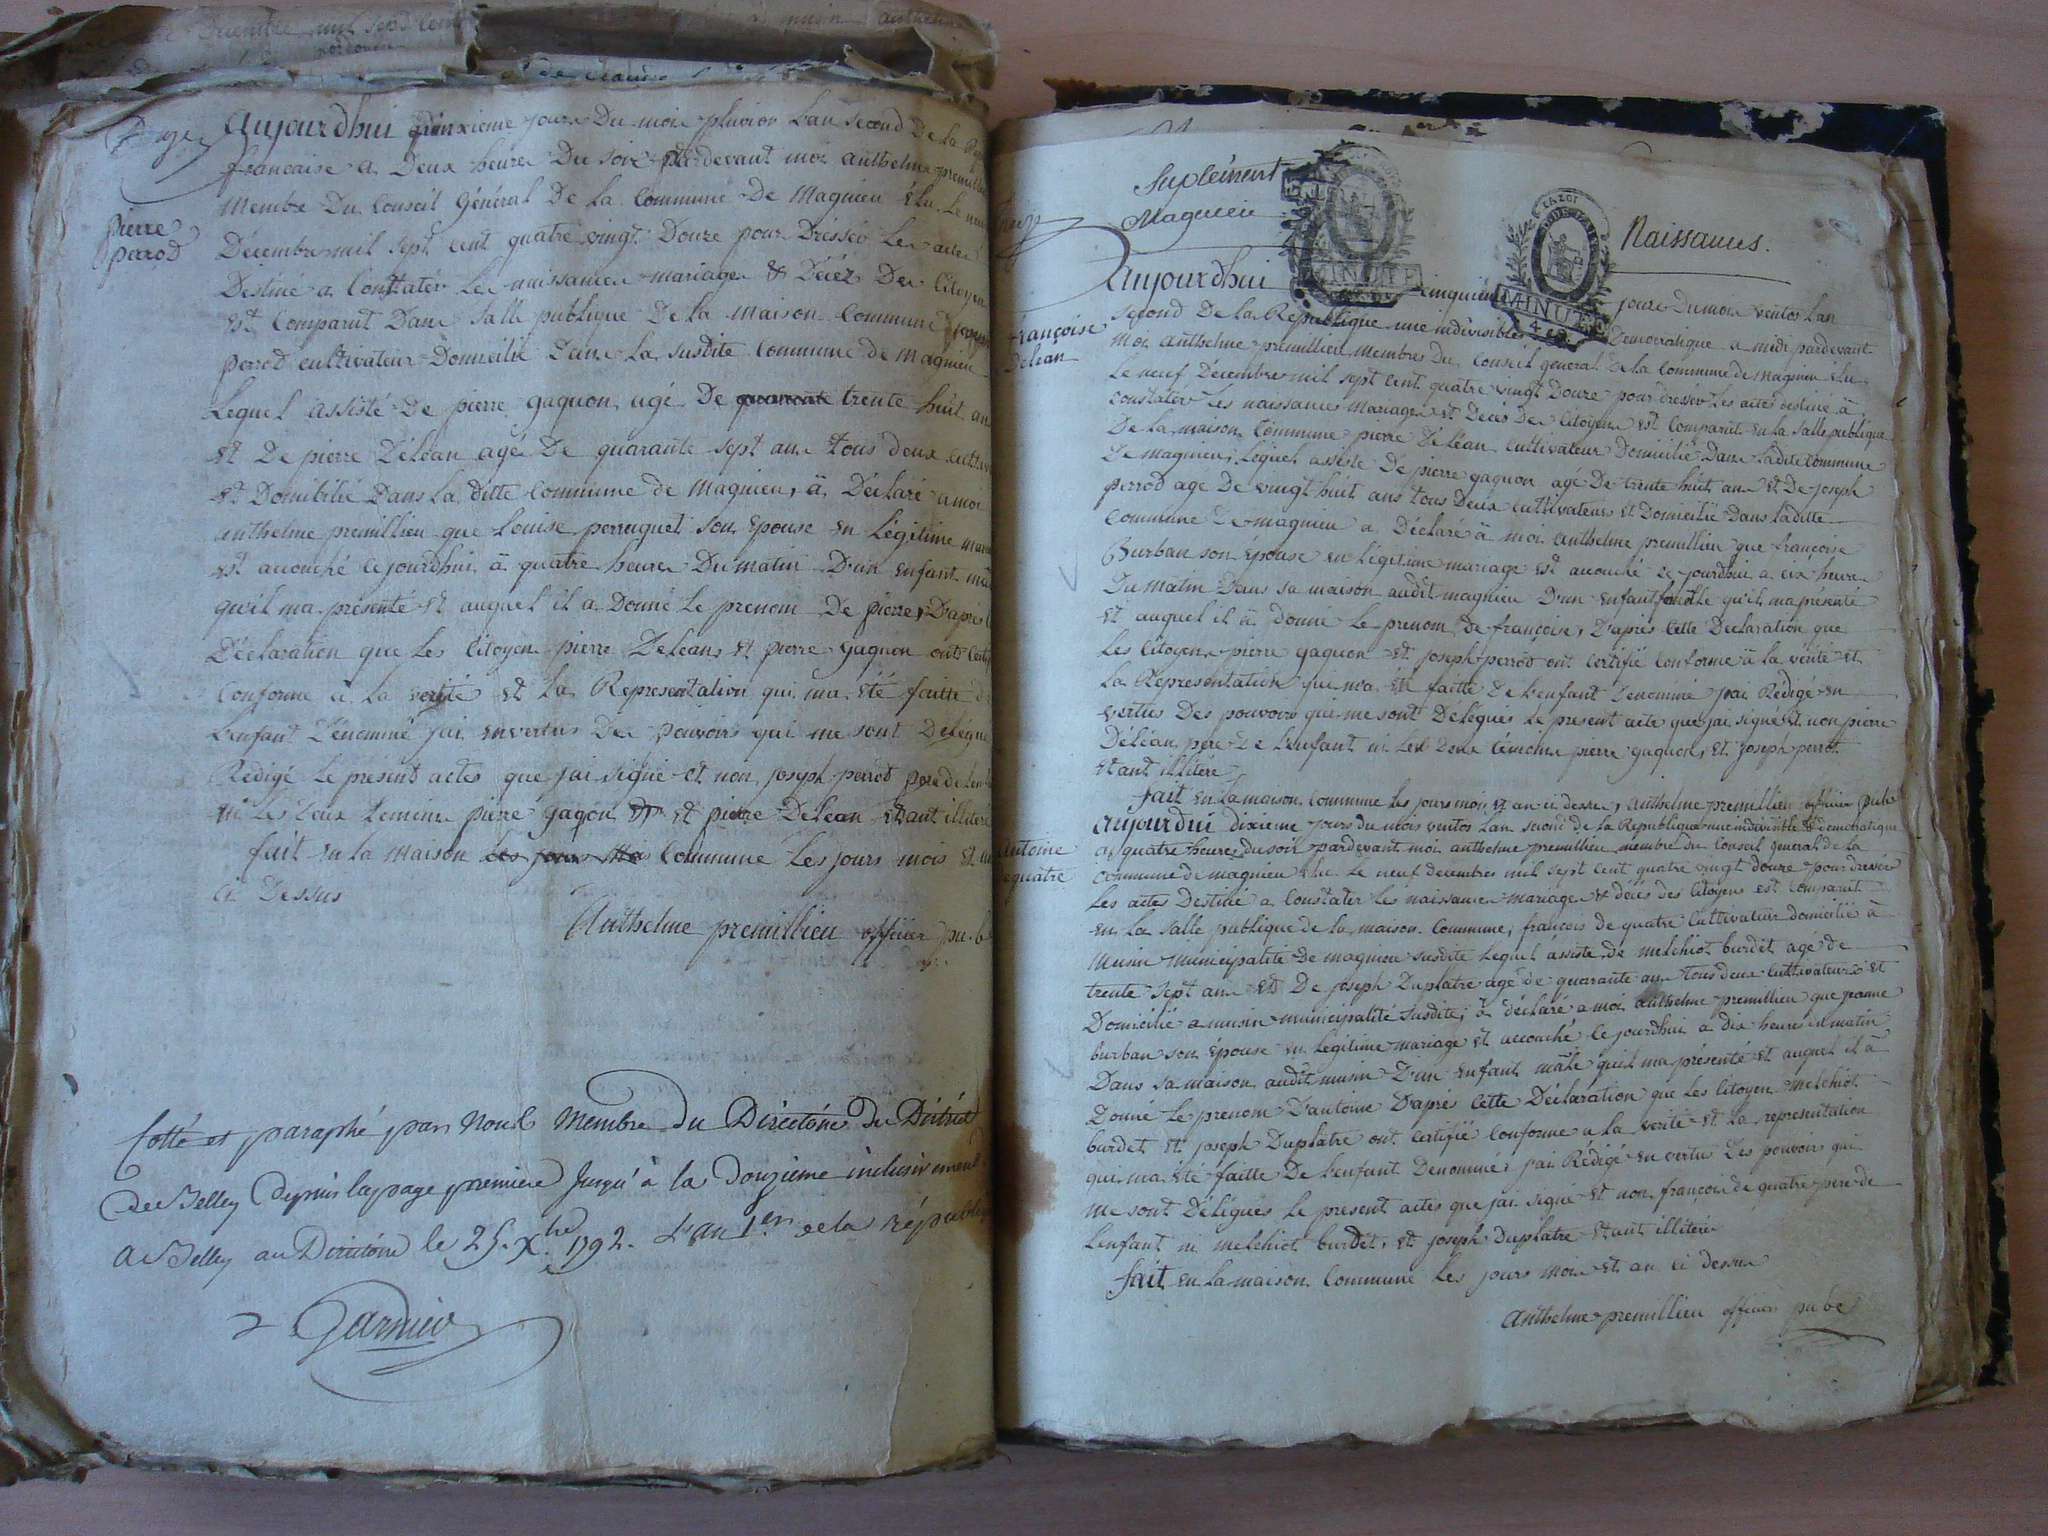 Aujourdhui quinxieme jours Du mois pluvios L'an Second De la
francaise a Deux heures Du soir Pardevant moi anthelme premillieu
Membre Du Conseil Général De la Commune De Magnieu élu Le neuf
pierre
perrod
Décembre mil sept cent quatre vingt Douze pour Dresser Les actes
Destiné a Constatér Les naissances mariages & Décéz Des Citoyens
Est Comparut Dans Salle publique De la maison Commune joseph
perrod cultivateur Domicilié Dans La susdite Commune de Magnieu
Lequel assisté De pierre gagnon agé De quarante trente huit ans
Et De pierre Déléan agé De quarante sept ans tous deux
Et Domibilié Dans La ditte Commune de Magnieu, ä Déclaré a moi
anthelme premillieu que Louise perruquet son Epouse En Légitime
Est accouché Cejourdhui ä quatre heures Du matin D'un Enfant
qu'il ma présenté Et auquel il a Donné Le prenom De pierre, D'après
Déclaration que Les Citoyens pierre Deléans Et pierre gagnon ont
Conforme à la verité Et La Representation qui ma Eté faitte de
L'enfant Dénominé j'ai Envertus Des pouvoirs qui me sont Délégué
Redigé Le présent actes que j'ai signé et non joseph perrod pere de
ni Les Deux temoins pierre gagon Et pierre Deléan Etant illitéré
fait En la maison les jours Mois Commune Les jours mois Et
ci Dessus
Anthelme premillieu officier pu.b
Cotté et paraphé par Nous Membre du Directoire du District
de Belley Depuis la page premiere Jusqu'à la Douzieme inclusivement
A Belley au Directoire le 25. Xbre 1792. L'an 1er de la républiq
Garnier
Suplément
Magnieu
MINUTE
MINUTE
Naissances.
aujourdhui cinquieme jours Du mois ventos Lan
françoise
Deléan
second De la République une indivisible Democratique a midi pardevant
moi anthelme premillieu membres Du Conseil general De la Commune de Magnieu élu
Le neuf Décembre mil sept cent quatre vingt Douze pour dressér Les actes destiné ä
constatér Les naissances mariages et Decés Des Citoyens Est Comparut En la salle publique
De la maison Commune pierre Déléan cultivateur Domicilié Dans Ladite Commune
De magnieu, Lequel assisté De pierre gagnon agé De trente huit ans Et De joseph
perrod agé De vingt huit ans tous Deux cultivateurs Et Domicilié Dans Laditte
Commune De magnieu a Déclaré ä moi anthelme premillieu que françoise
Burban son épouse en Légitime mariage Est accouché Ce jourdhui a six heures
Du matin Dans sa maison audit magnieu D'un enfant femelle qu'il ma présenté
Et auquel il ä donné Le prenom De françoise, D'après Cette Declaration que
Les Citoyens pierre gagnon Et joseph perrod ont certifié Conforme ä la verité Et
La Representation qui m'a Eté faitte De L'enfant Denommé j'ai Rédigé En
vertus Des pouvoirs qui me sont Délégués Le present acte que j'ai signé Et non pierre
Déléan pere De L'enfant ni Les Deux témoins pierre gagnon, Et joseph perrot
Etant illitéré
fait En la maison Commune les jours mois Et an ci dessus, Anthelme premillieu officier pub
Antoine
dequatre
aujourdui dixieme jours du mois ventos Lan second de la Republique une indivisible & démocratique
a quatre heures du soir pardevant moi anthelme premillieu membre du Conseil general de la
commune de magnieu élu Le neuf decembres mil sept cent quatre vingt douze pour dressér
Les actes Destiné a Constater Les naissances mariages & décés des Citoyens est Comparut
en La salle publique de la maison Commune, francois de quatre Cultivateur domicilié ä
Musin municipalité De magnieu susdite Lequel ässisté de melchiot burdet agé de
trente sept ans Et De joseph Duplatre agé de quarante ans tous deux Cultivateurs Et
Domicilié a musin municipalité susdite, ä déclaré a moi anthelme premillieu que jeanne
burban son épouse en Légitime mariage et accouché Ce jourdhui a dix heures du matin
Dans sa maison audit musin D'un enfant mâle qu'il ma présenté Et auquel il ä
Donné Le prenom D'antoine D'après cette Déclaration que Les Citoyen melchiot
burdet Et joseph Duplatre ont certifié Conforme a la verité Et La representation
qui ma Eté faitte De L'enfant Denommé j'ai Rédigé en vertus Des pouvoirs qui
me sont Délégués Le present actes que j'ai signé Et non francois de quatre pere de
L'enfant ni melchiot burdet, Et joseph duplatre Etant illitéré
fait En La maison Commune Les jours mois Et an ci dessus
Anthelme premillieu officier pube